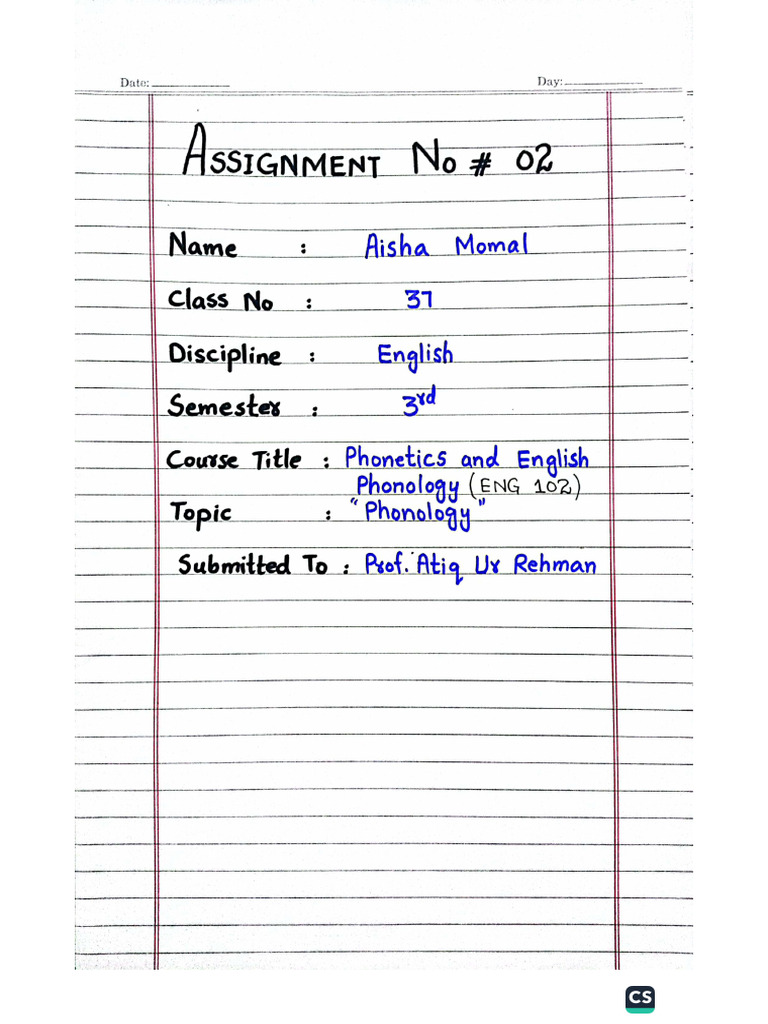 Date: Day:
ASSIGNMENT No # 02
Name : Aisha Momal
Class No : 37
Discipline : English
Semester : 3rd
Course Title : Phonetics and English
Phonology (ENG 102)
Topic : "Phonology"
Submitted To : Prof. Atiq Ur Rehman
CS